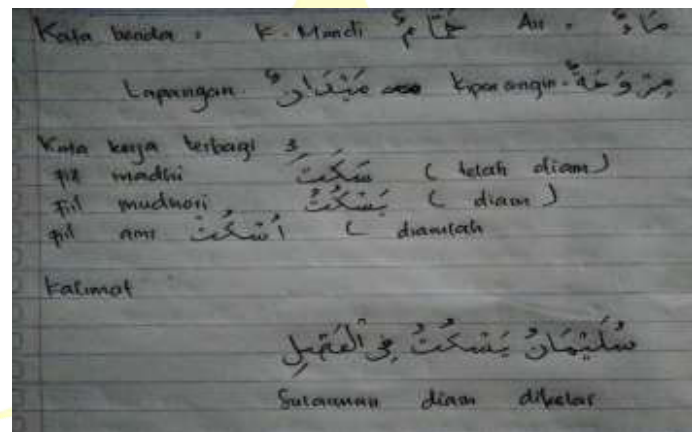 Kata benda : K. Mandi حَمَّامٌ Air . مَاءٌ
Lapangan مَيْدَانٌ Kipas angin . مِرْوَحَةٌ
Kata kerja terbagi 3
fi'il madhi سَكَتَ ( telah diam )
fi'il mudhori يَسْكُتُ ( diam )
fi'il amr اُسْكُتْ ( diamlah
Kalimat
سُلَيْمَانُ يَسْكُتُ فِي الْفَصْلِ
Sulaiman diam dikelas